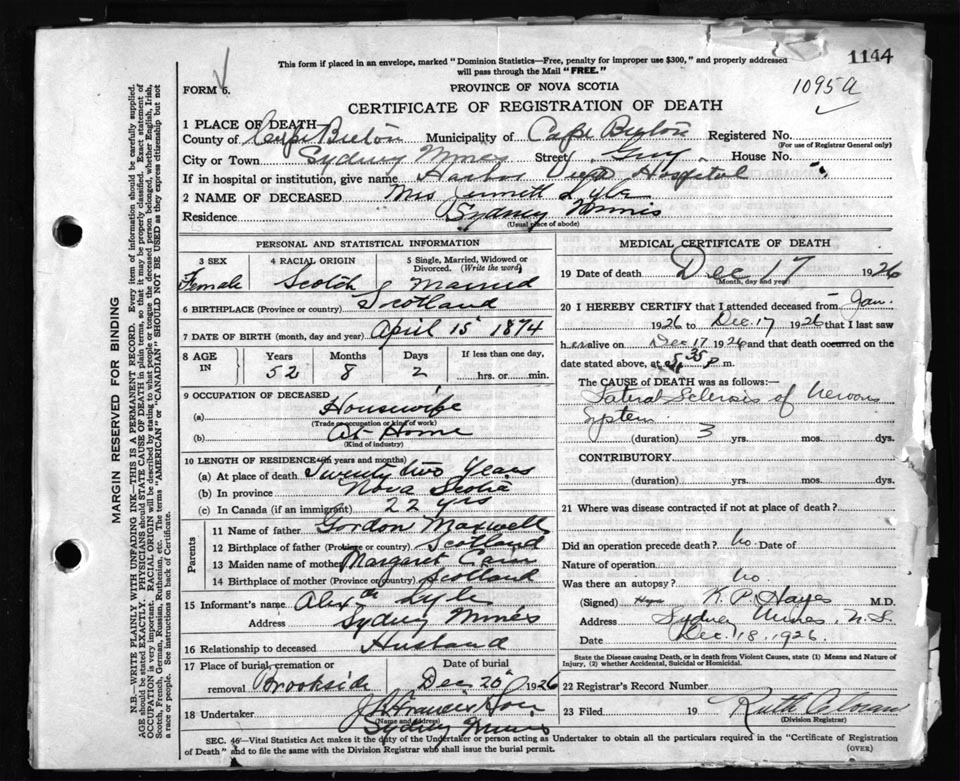 This form if placed in an envelope, marked "Dominion Statistics—Free, penalty for improper use $300," and properly addressed
will pass through the Mail "FREE."
1144
FORM 6.
PROVINCE OF NOVA SCOTIA
1095a
CERTIFICATE OF REGISTRATION OF DEATH
1 PLACE OF DEATH—
County of Cape Breton Municipality of Cape Breton Registered No.
(For use of Registrar General only)
City or Town Sydney Mines Street Guy House No.
If in hospital or institution, give name Harbor View Hospital
2 NAME OF DECEASED Mrs Lyle
Residence Sydney Mines
(Usual place of abode)
PERSONAL AND STATISTICAL INFORMATION
3 SEX 4 RACIAL ORIGIN 5 Single, Married, Widowed or
Divorced. (Write the word)
Female Scotch Married
6 BIRTHPLACE (Province or country) Scotland
7 DATE OF BIRTH (month, day and year) April 15 1874
8 AGE IN Years Months Days If less than one day,
52 8 2 hrs. or min.
9 OCCUPATION OF DECEASED
(a) Housewife
(Trade or occupation or kind of work)
(b) At Home
(Kind of industry)
10 LENGTH OF RESIDENCE (in years and months)
(a) At place of death Twenty two Years
(b) In province Nova Scotia
(c) In Canada (if an immigrant) 22 yrs
Parents
11 Name of father Gordon Maxwell
12 Birthplace of father (Province or country) Scotland
13 Maiden name of mother Margaret
14 Birthplace of mother (Province or country) Scotland
15 Informant's name Alex Lyle
Address Sydney Mines
16 Relationship to deceased Husband
17 Place of burial, cremation or Date of burial
removal Brookside Dec 20 1926
18 Undertaker J Francis
(Name and Address)
Sydney Mines
MEDICAL CERTIFICATE OF DEATH
19 Date of death Dec 17 1926
(Month, day and year)
20 I HEREBY CERTIFY that I attended deceased from Jan.
1926 to Dec. 17 1926 that I last saw
her alive on Dec 17 1926 and that death occurred on the
date stated above, at 5.35 P m.
The CAUSE of DEATH was as follows:—
Lateral Sclerosis of Nervous
System
(duration) 3 yrs. mos. dys.
CONTRIBUTORY
(duration) yrs. mos. dys.
21 Where was disease contracted if not at place of death?
Did an operation precede death? No Date of
Nature of operation
Was there an autopsy? No
(Signed) K. P. Hayes M.D.
Address Sydney Mines, N.S.
Date Dec. 18, 1926.
State the Disease causing Death, or in death from Violent Causes, state (1) Means and Nature of
Injury, (2) whether Accidental, Suicidal or Homicidal.
22 Registrar's Record Number
23 Filed 19 Ruth
(Division Registrar)
SEC. 46—Vital Statistics Act makes it the duty of the Undertaker or person acting as Undertaker to obtain all the particulars required in the "Certificate of Registration
of Death" and to file the same with the Division Registrar who shall issue the burial permit.
(OVER)
MARGIN RESERVED FOR BINDING
N.B.—WRITE PLAINLY WITH UNFADING INK—THIS IS A PERMANENT RECORD. Every item of information should be carefully supplied.
AGE should be stated EXACTLY. PHYSICIANS should STATE CAUSE OF DEATH in plain terms, so that it may be properly classified. Exact statement of
OCCUPATION is very important. RACIAL ORIGIN will be described by stating to what people or tongue the deceased person belonged, whether English, Irish,
Scotch, French, German, Russian, Ruthenian, etc. The terms "AMERICAN" or "CANADIAN" SHOULD NOT BE USED as they express citizenship but not
a race or people. See instructions on back of Certificate.